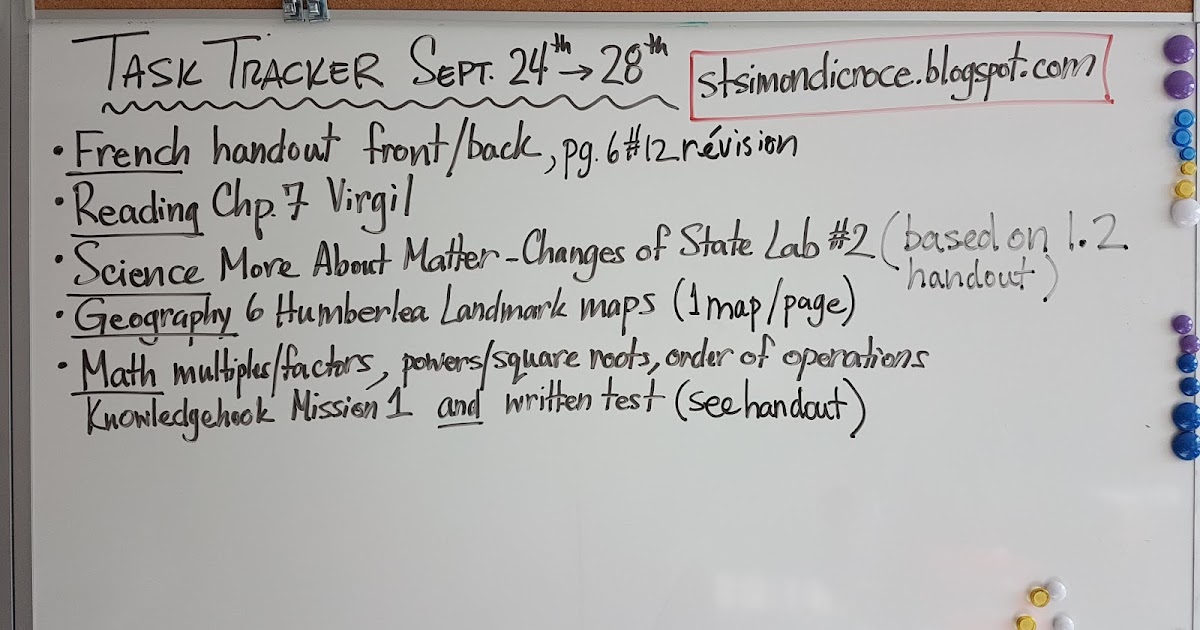 TASK TRACKER SEPT. 24th → 28th
stsimondicroce.blogspot.com
• French handout front/back, pg. 6 #12 révision
• Reading Chp. 7 Virgil
• Science More About Matter - Changes of State Lab #2 (based on 1.2
handout)
• Geography 6 Humberlea Landmark maps (1 map/page)
• Math multiples/factors, powers/square roots, order of operations
Knowledgehook Mission 1 and written test (see handout)